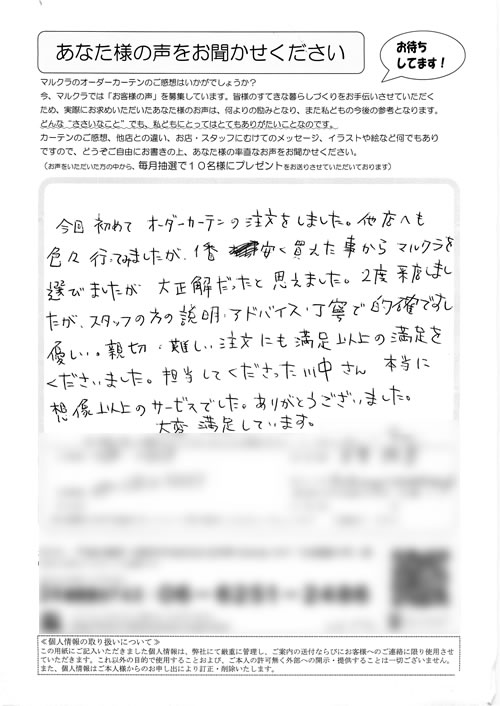 あなた様の声をお聞かせください
お待ち
してます！
マルクラのオーダーカーテンのご感想はいかがでしょうか？
今、マルクラでは「お客様の声」を募集しています。皆様のすてきな暮らしづくりをお手伝いさせていただく
ため、実際にお求めいただいたあなた様のお声は、何よりの励みとなり、また私どもの今後の参考となります。
どんな“ささいなこと”でも、私どもにとってはとてもありがたいことなのです。
カーテンのご感想、他店との違い、お店・スタッフにむけてのメッセージ、イラストや絵など何でもあり
ですので、どうぞご自由にお書きの上、あなた様の率直なお声をお聞かせください。
（お声をいただいた方の中から、毎月抽選で１０名様にプレゼントをお送りさせていただいております）
今回 初めて オーダーカーテンの注文をしました。他店へも
色々行ってみましたが、1番 安く買えた事から マルクラを
選びましたが 大正解だったと思えました。2度来店しまし
たが、スタッフの方の説明・アドバイス・丁寧で的確ですし
優しい。親切、難しい注文にも満足以上の満足を
くださいました。担当してくださった川中さん 本当に
想像以上のサービスでした。ありがとうございました。
大変満足しています。
06-6251-2486
≪個人情報の取り扱いについて≫
この用紙にご記入いただきました個人情報は、弊社にて厳重に管理し、ご案内の送付ならびにお客様へのご連絡に限り使用させ
ていただきます。これ以外の目的で使用することおよび、ご本人の許可無く外部への開示・提供することは一切ございません。
また、個人情報はご本人様からのお申し出により訂正・削除いたします。